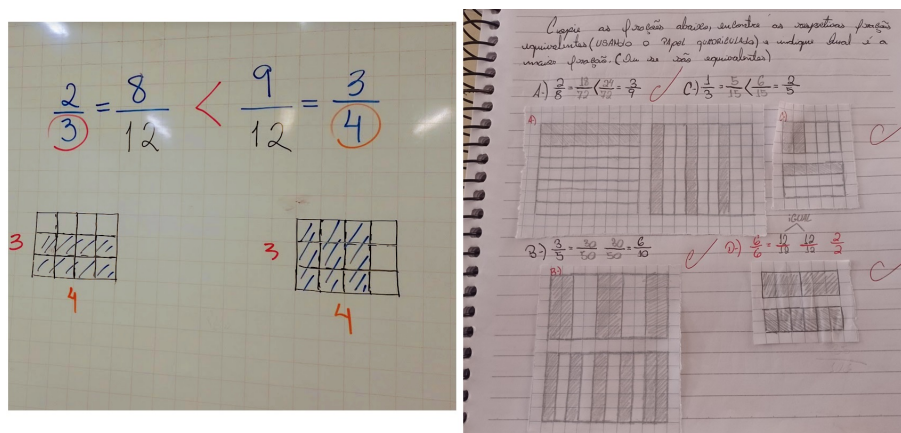 2/3 = 8/12 < 9/12 = 3/4
3
4
3
4
Copie as frações abaixo, encontre as respetivas frações
equivalentes (USANDO O PAPEL QUADRICULADO) e indique qual é a
maior fração. (Ou se são equivalentes)
A-) 2/8 = 18/72 < 24/72 = 3/9
C-) 1/3 = 5/15 < 6/15 = 2/5
A)
C)
IGUAL
B-) 3/5 = 30/50 30/50 = 6/10
D-) 6/6 = 12/12 12/12 2/2
B-)